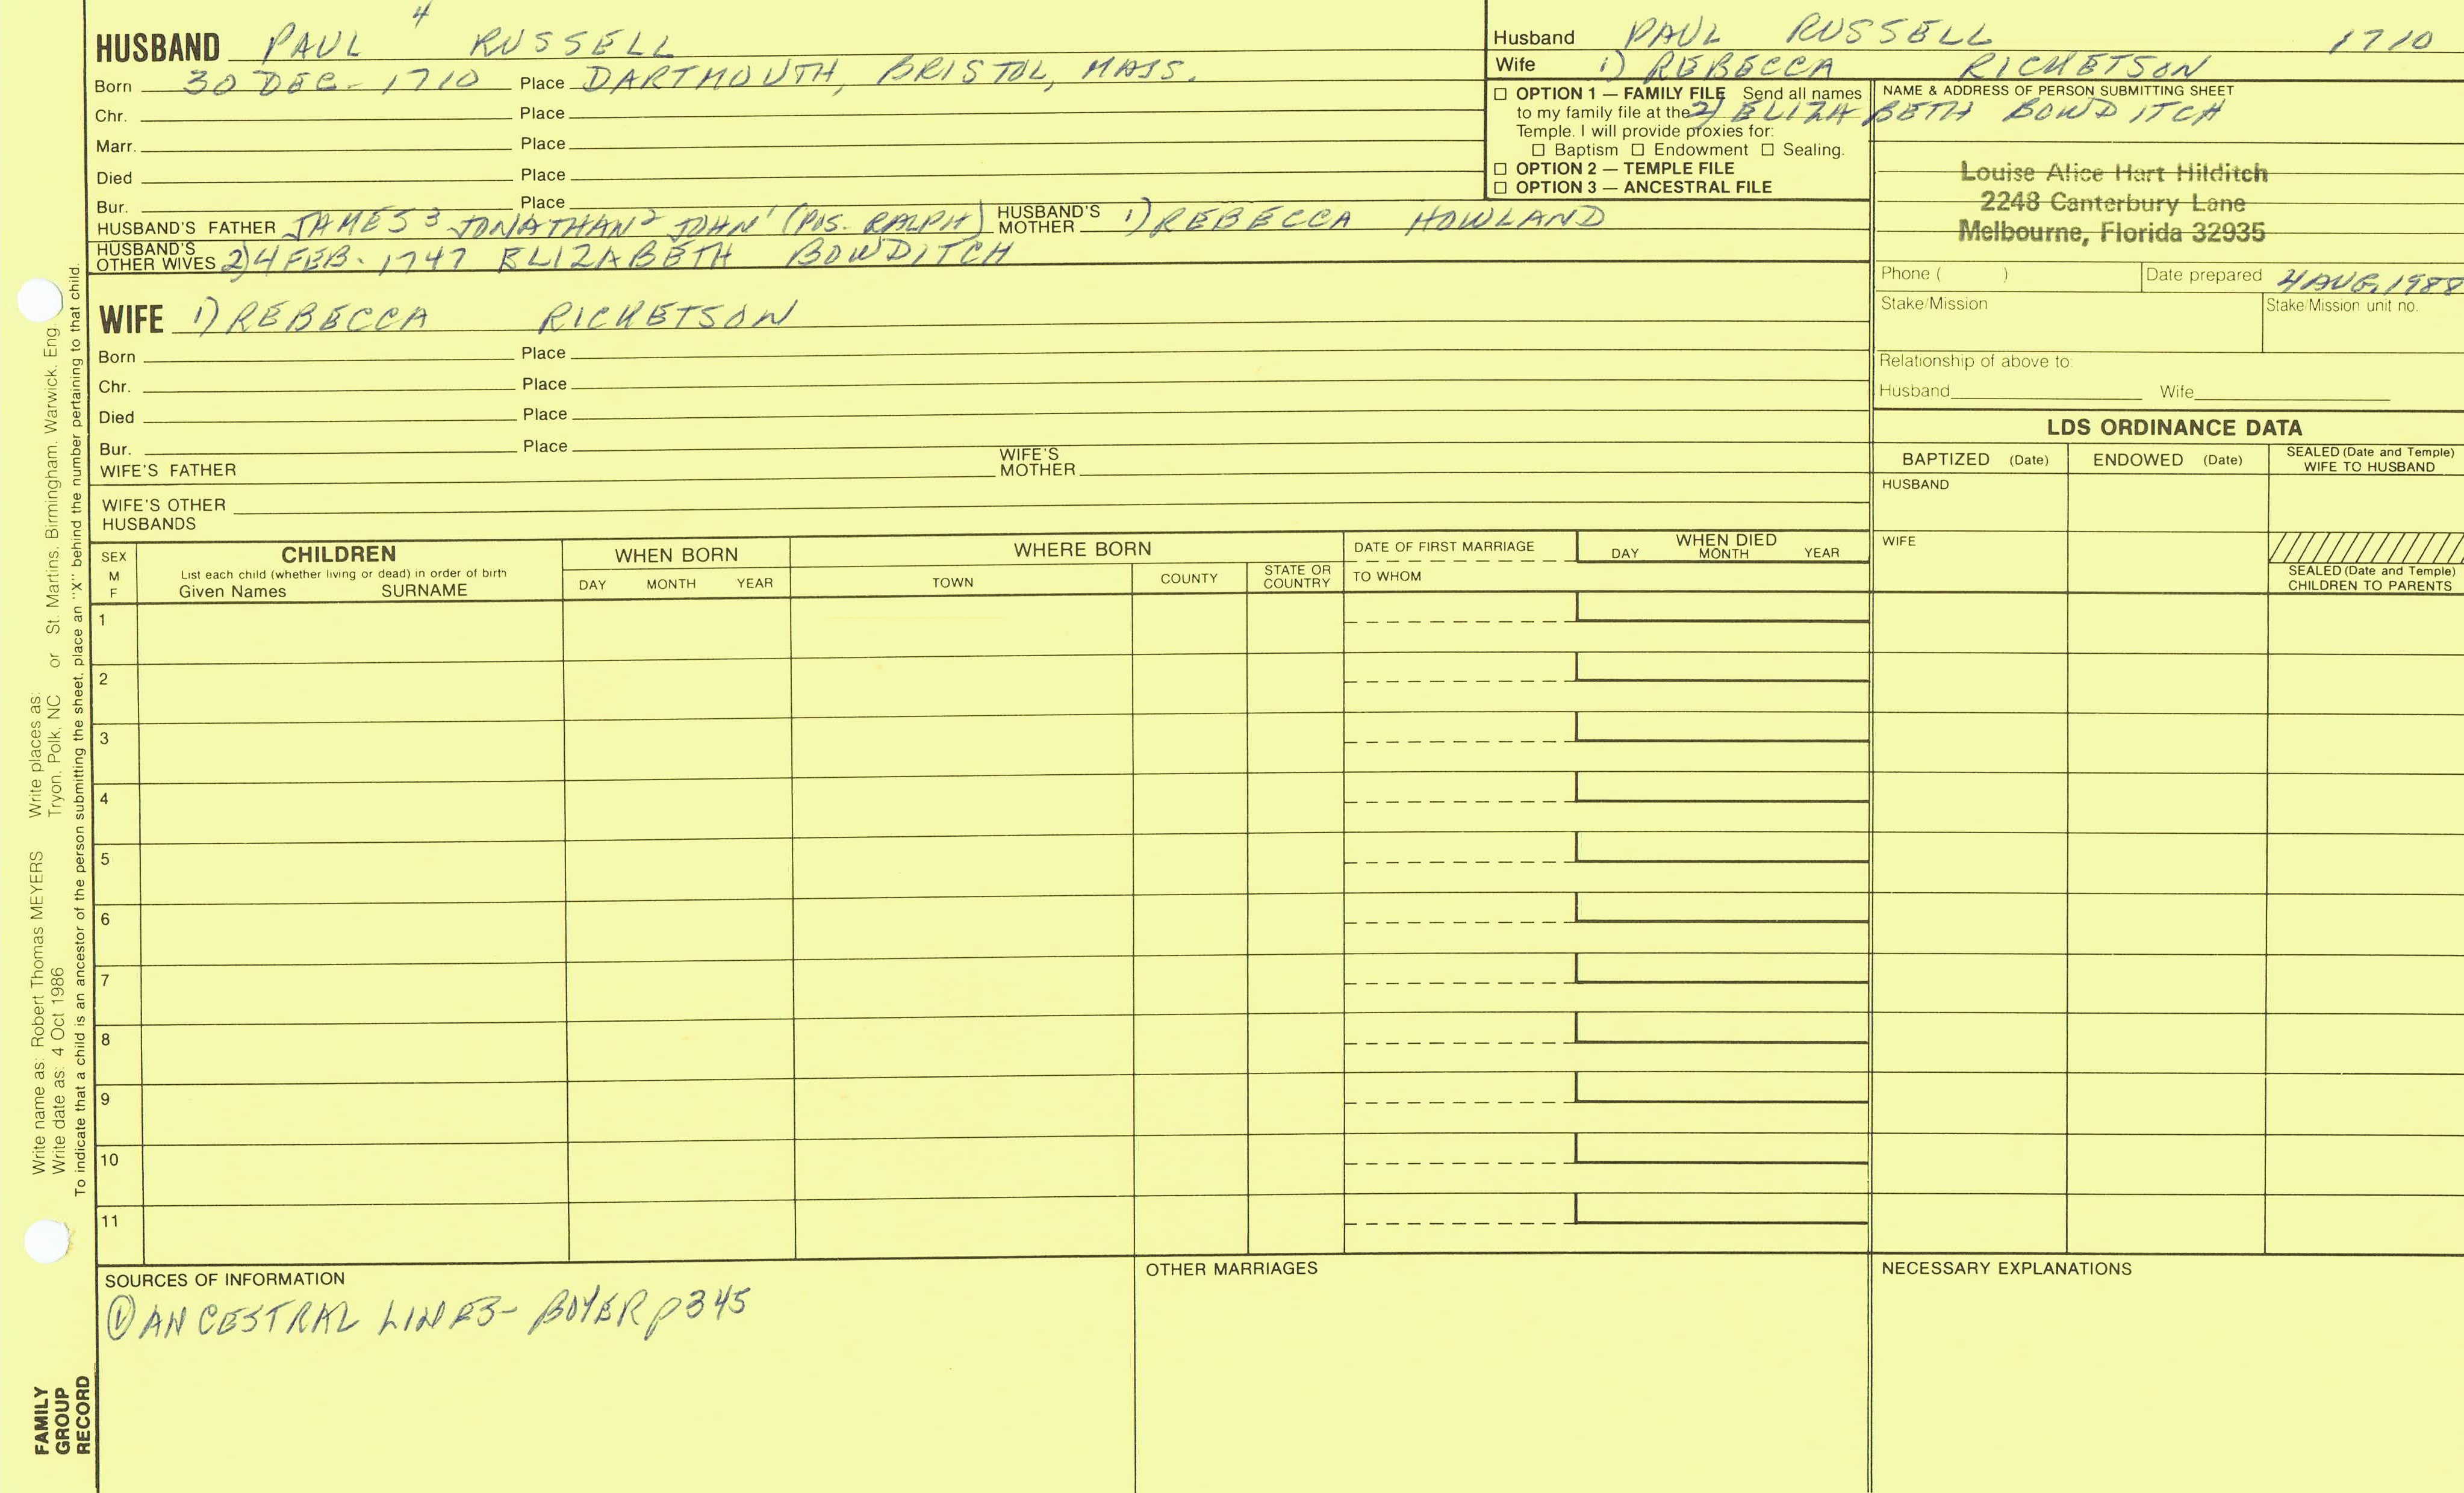 4
HUSBAND PAUL RUSSELL
Born 30 DEC. 1710 Place DARTMOUTH, BRISTOL, MASS.
Chr. Place
Marr. Place
Died Place
Bur. Place
HUSBAND'S FATHER JAMES 3 JONATHAN 2 JOHN 1 (POS. RALPH) HUSBAND'S MOTHER 1) REBECCA HOWLAND
HUSBAND'S OTHER WIVES 2) 4 FEB. 1747 ELIZABETH BOWDITCH
WIFE 1) REBECCA RICKETSON
Born Place
Chr. Place
Died Place
Bur. Place
WIFE'S FATHER WIFE'S MOTHER
WIFE'S OTHER HUSBANDS
Husband PAUL RUSSELL 1710
Wife 1) REBECCA RICKETSON
2) ELIZABETH BOWDITCH
OPTION 1 — FAMILY FILE Send all names
to my family file at the
Temple. I will provide proxies for:
Baptism Endowment Sealing.
OPTION 2 — TEMPLE FILE
OPTION 3 — ANCESTRAL FILE
NAME & ADDRESS OF PERSON SUBMITTING SHEET
Louise Alice Hart Hilditch
2248 Canterbury Lane
Melbourne, Florida 32935
Phone ( ) Date prepared 4 AUG, 1988
Stake/Mission Stake/Mission unit no.
Relationship of above to:
Husband Wife
LDS ORDINANCE DATA
BAPTIZED (Date) ENDOWED (Date) SEALED (Date and Temple) WIFE TO HUSBAND
HUSBAND
WIFE
SEALED (Date and Temple) CHILDREN TO PARENTS
SEX M F
CHILDREN
List each child (whether living or dead) in order of birth
Given Names SURNAME
WHEN BORN
DAY MONTH YEAR
WHERE BORN
TOWN COUNTY STATE OR COUNTRY
DATE OF FIRST MARRIAGE
TO WHOM
WHEN DIED
DAY MONTH YEAR
1
2
3
4
5
6
7
8
9
10
11
SOURCES OF INFORMATION
① ANCESTRAL LINES- BOYER p345
OTHER MARRIAGES
NECESSARY EXPLANATIONS
Write name as: Robert Thomas MEYERS Write places as: St. Martins, Birmingham, Warwick, Eng.
Write date as: 4 Oct 1986 Tryon, Polk, NC or
To indicate that a child is an ancestor of the person submitting the sheet, place an "X" behind the number pertaining to that child.
FAMILY
GROUP
RECORD